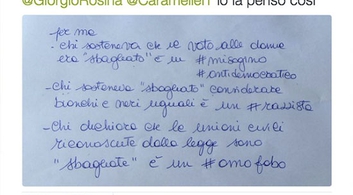 @GiorgioRosina @Caramellen io la penso così
per me
. chi sosteneva che il voto alle donne
era "sbagliato" è un #misogino
#antidemocratico
- chi sosteneva "sbagliato" considerare
bianchi e neri uguali è un #razzista
- chi dichiara che le unioni civili
riconosciute dalla legge sono
"sbagliate" è un #omofobo